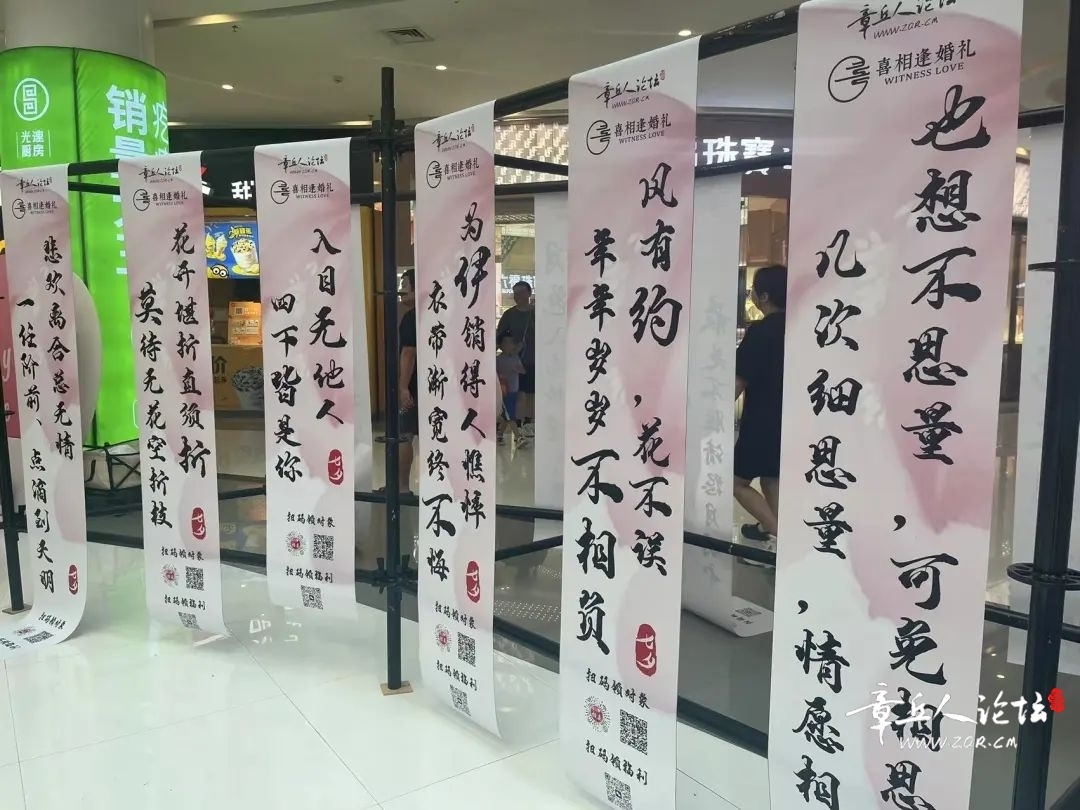 回回
光速
厨房
销量
章丘人论坛
喜相逢婚礼
WITNESS LOVE
悲欢离合总无情
一任阶前、点滴到天明
七夕
章丘人论坛
WWW.ZQR.CM
喜相逢婚礼
WITNESS LOVE
花开堪折直须折
莫待无花空折枝
七夕
扫码领对象
扫码领福利
章丘人论坛
WWW.ZQR.CM
喜相逢婚礼
WITNESS LOVE
入目无他人
四下皆是你
七夕
扫码领对象
扫码领福利
章丘人论坛
WWW.ZQR.CM
喜相逢婚礼
WITNESS LOVE
为伊销得人憔悴
衣带渐宽终不悔
七夕
扫码领对象
扫码领福利
章丘人论坛
WWW.ZQR.CM
喜相逢婚礼
WITNESS LOVE
风有约，花不误
年年岁岁不相负
七夕
扫码领对象
扫码领福利
章丘人论坛
WWW.ZQR.CM
喜相逢婚礼
WITNESS LOVE
也想不思量，可免相思
几次细思量，情愿相
珠寶
章丘人论坛
WWW.ZQR.CM